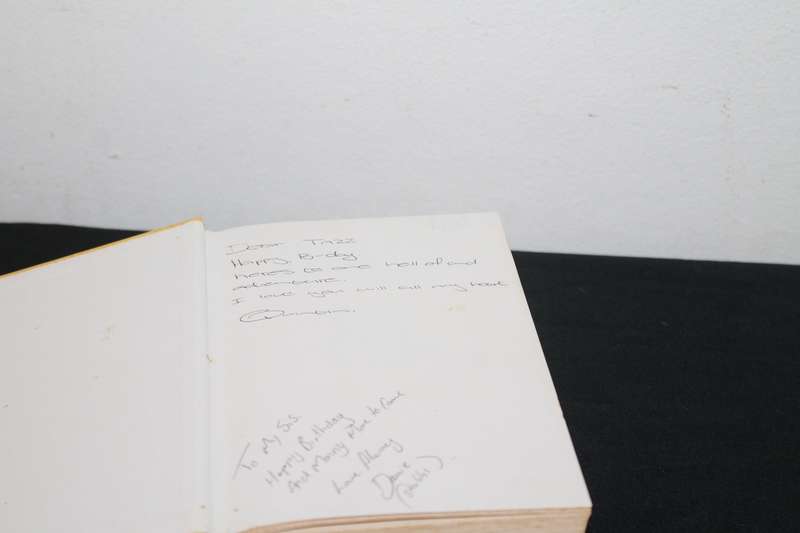 Dear Tazz
Happy B-day
heres to one hell of and
adventure.
I love you with all my heart
To My Sis.
Happy Birthday
And Many More to Come
Love Always